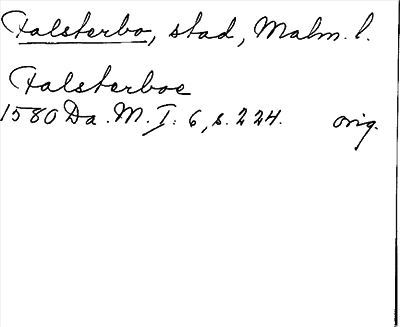 Falsterbo, stad, Malm. l.
Falsterboe
1580 Da. M. I: 6, s. 224. orig.